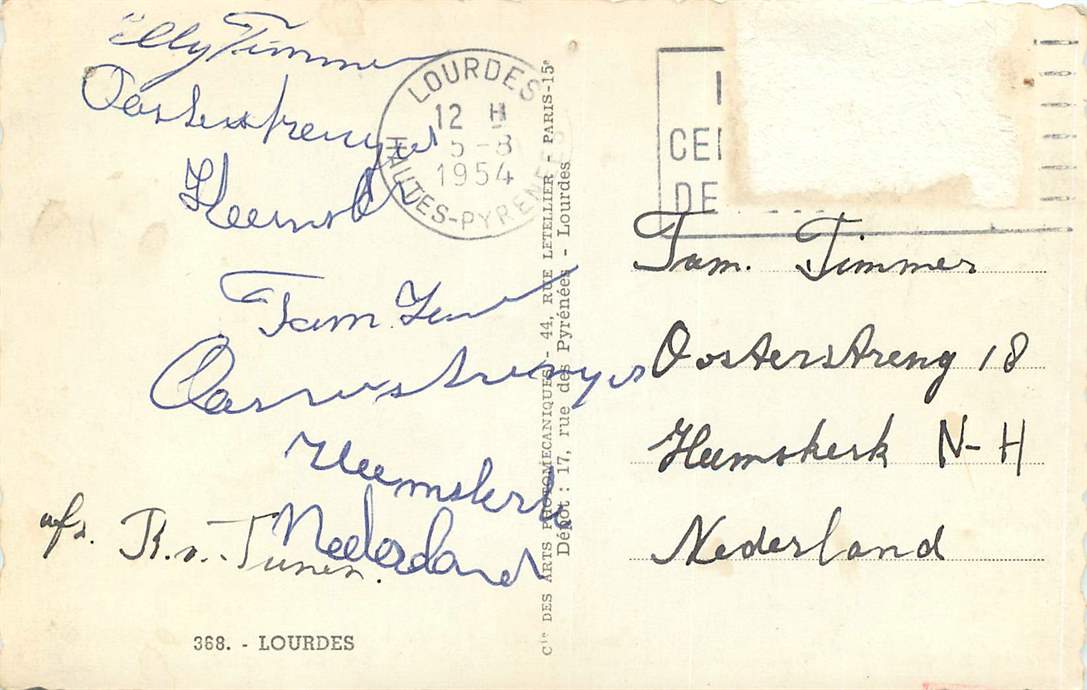 Elly Timmer
Heemsk
Fam.
Heemskerk
Nederland
afz. R. v. Tunen.
368. - LOURDES
LOURDES
12 H
5-8
1954
HAUTES-PYRENEES
Cie DES ARTS PHOTOMECANIQUES - 44, RUE LETELLIER - PARIS-15e
Dépôt : 17, rue des Pyrénées - Lourdes
CE
DE
Fam. Timmer
Oosterstreng 18
Heemskerk N-H
Nederland